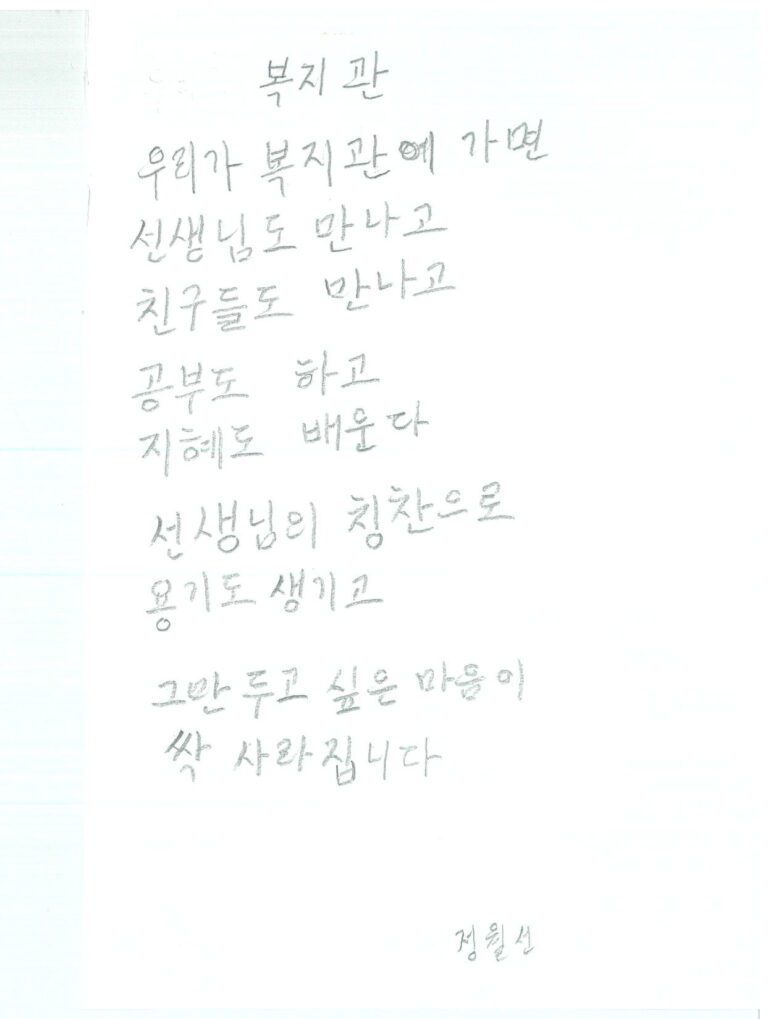 복지관
우리가 복지관에 가면
선생님도 만나고
친구들도 만나고
공부도 하고
지혜도 배운다
선생님의 칭찬으로
용기도 생기고
그만 두고 싶은 마음이
싹 사라집니다
정월선